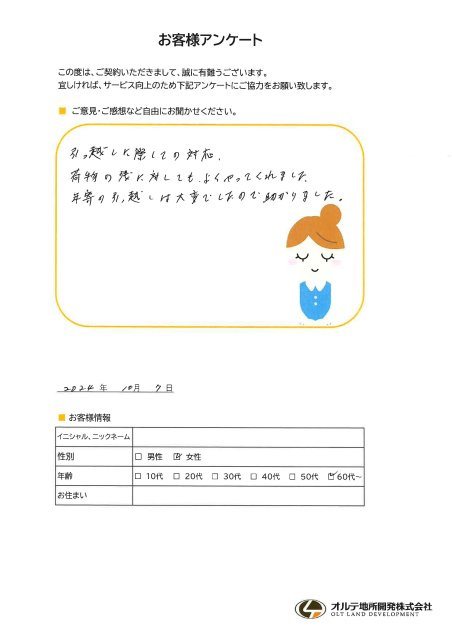 お客様アンケート
この度は、ご契約いただきまして、誠に有難うございます。
宜しければ、サービス向上のため下記アンケートにご協力をお願い致します。
■ ご意見・ご感想など自由にお聞かせください。
引っ越しに際しての対応、
荷物の残に対しても、よくやってくれました
年寄の引っ越しは大変でしたので助かりました。
2024 年 10月 7 日
■ お客様情報
イニシャル、ニックネーム
性別 □ 男性 ☑ 女性
年齢 □ 10代 □ 20代 □ 30代 □ 40代 □ 50代 ☑ 60代~
お住まい
オルテ地所開発株式会社
OLT LAND DEVELOPMENT